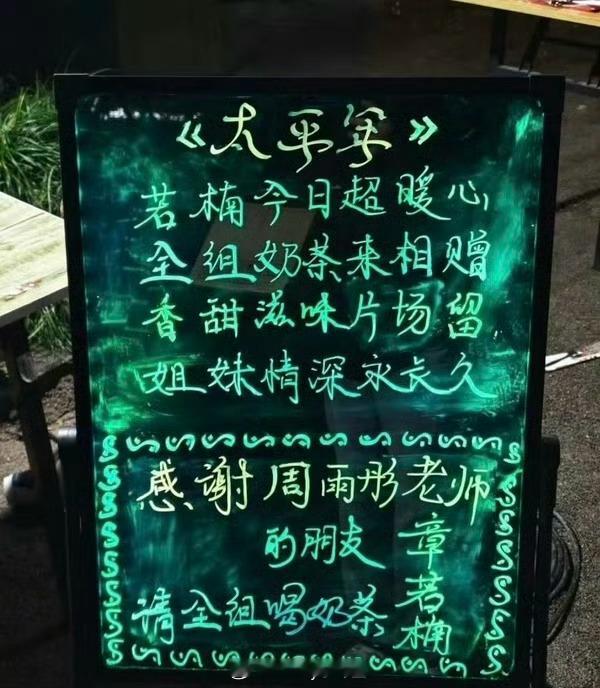 《太平年》
若楠今日超暖心
全组奶茶来相赠
香甜滋味片场留
姐妹情深永长久
感谢周雨彤老师
的朋友 章若楠
请全组喝奶茶